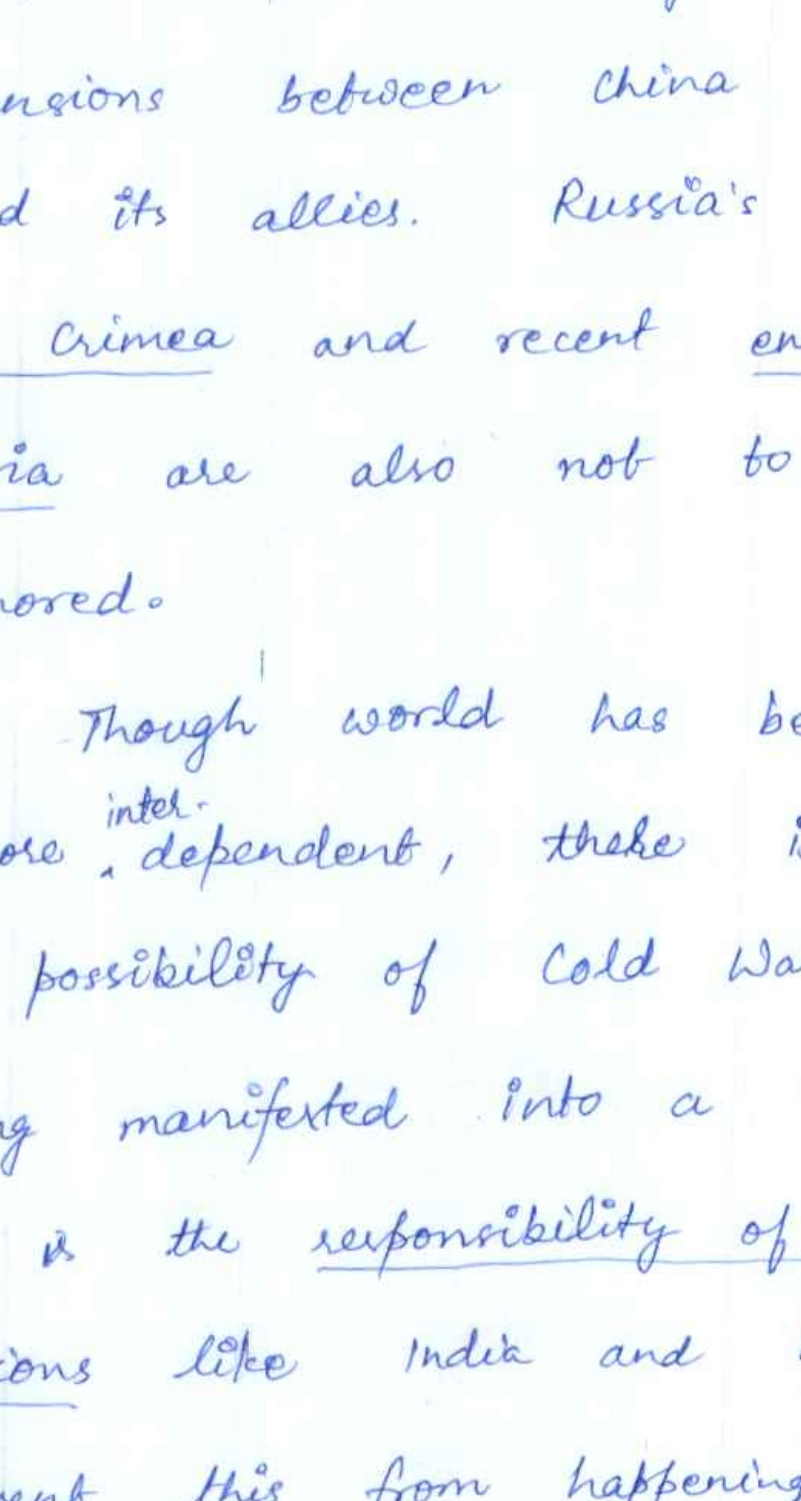 nsions between China
d its allies. Russia's
Crimea and recent en
ia are also not to
nored.
Though world has be
inter-
ore ‸ dependent, there is
possibility of Cold Wa
ng manifested into a
is the responsibility of
ions like India and
ent this from happening